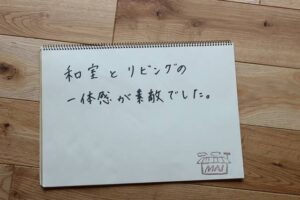 和室とリビングの
一体感が素敵でした。